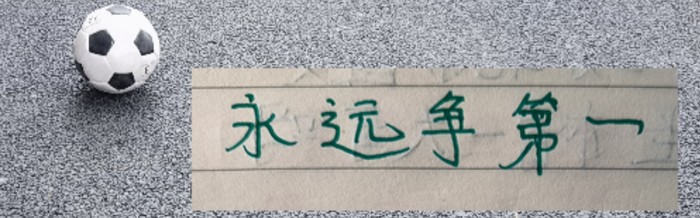 永远争第一